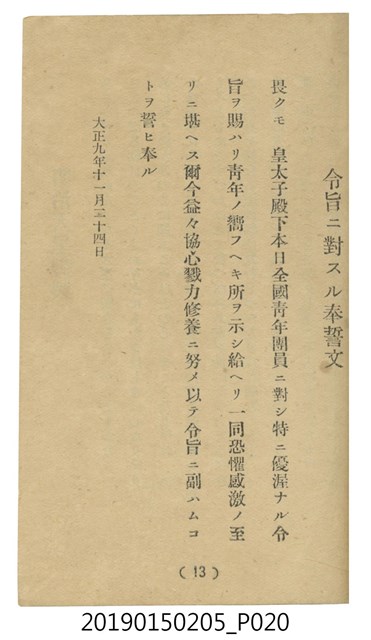 令旨ニ對スル奉誓文
畏クモ　皇太子殿下本日全國靑年團員ニ對シ特ニ優渥ナル令
旨ヲ賜ハリ靑年ノ嚮フヘキ所ヲ示シ給ヘリ一同恐懼感激ノ至
リニ堪ヘス爾今益々協心戮力修養ニ努メ以テ令旨ニ副ハムコ
トヲ誓ヒ奉ル
大正九年十一月二十四日
(13)
20190150205_P020